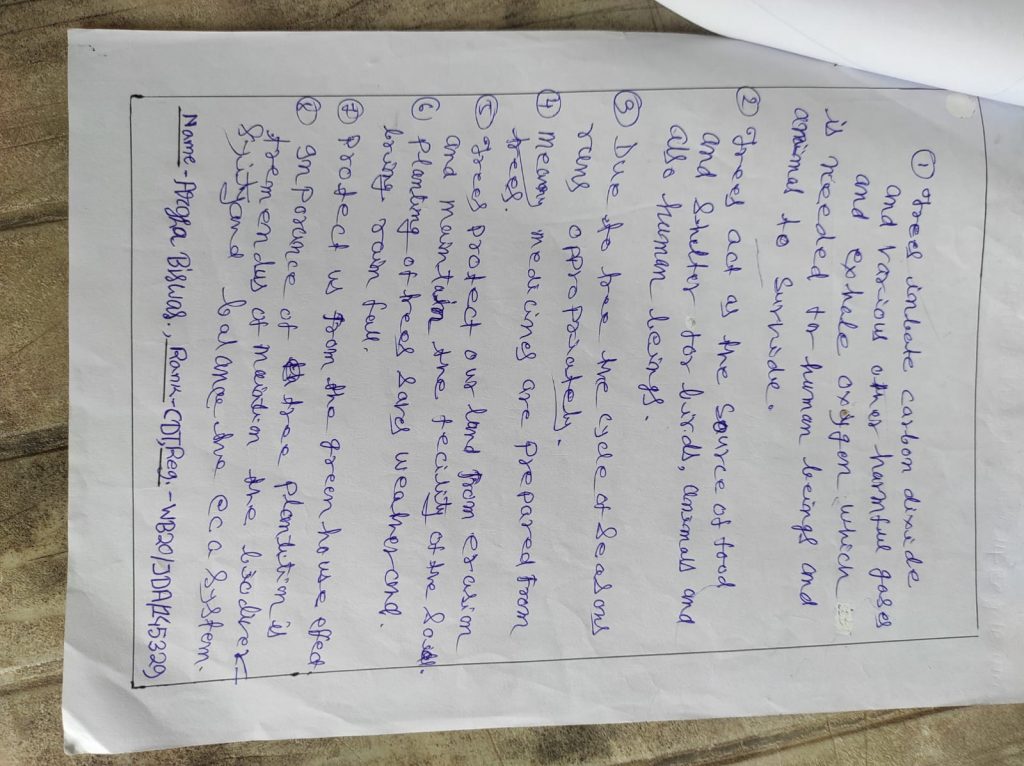 ① Trees inhate carbon dixide
and various other harmful gases
and exhale oxygen which
is needed for human beings and
animal to survive.
② Trees act as the source of food
and shelter for birds, animals and
also human beings.
③ Due to tree the cycle of seasons
runs appropriately.
④ Meany medicines are prepared from
trees.
⑤ Trees protect our land from erasion
and maintain the fecility of the soil.
⑥ Planting of trees savs weather and
bring rain fall.
⑦ Protect us from the green house effect.
⑧ Imporance of tree plantution is
tremendus of mention the biodiver-
Sity and balance the eco system.
Name - Argha Biswas., Rank - CDT, Reg. - WB20/JDA/145329